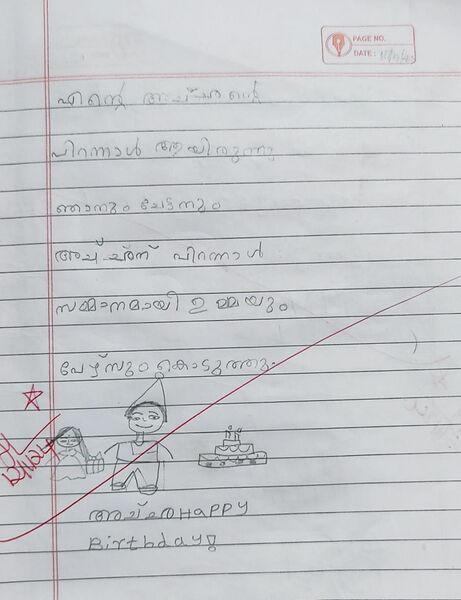 PAGE NO.
DATE:
എന്റെ അച്ഛന്റെ
പിറന്നാൾ ആയിരുന്നു
ഞാനും ചേട്ടനും
അച്ഛന് പിറന്നാൾ
സമ്മാനമായി ഉമ്മയും
പേഴ്സും കൊടുത്തു.
HAPPY
Birthday